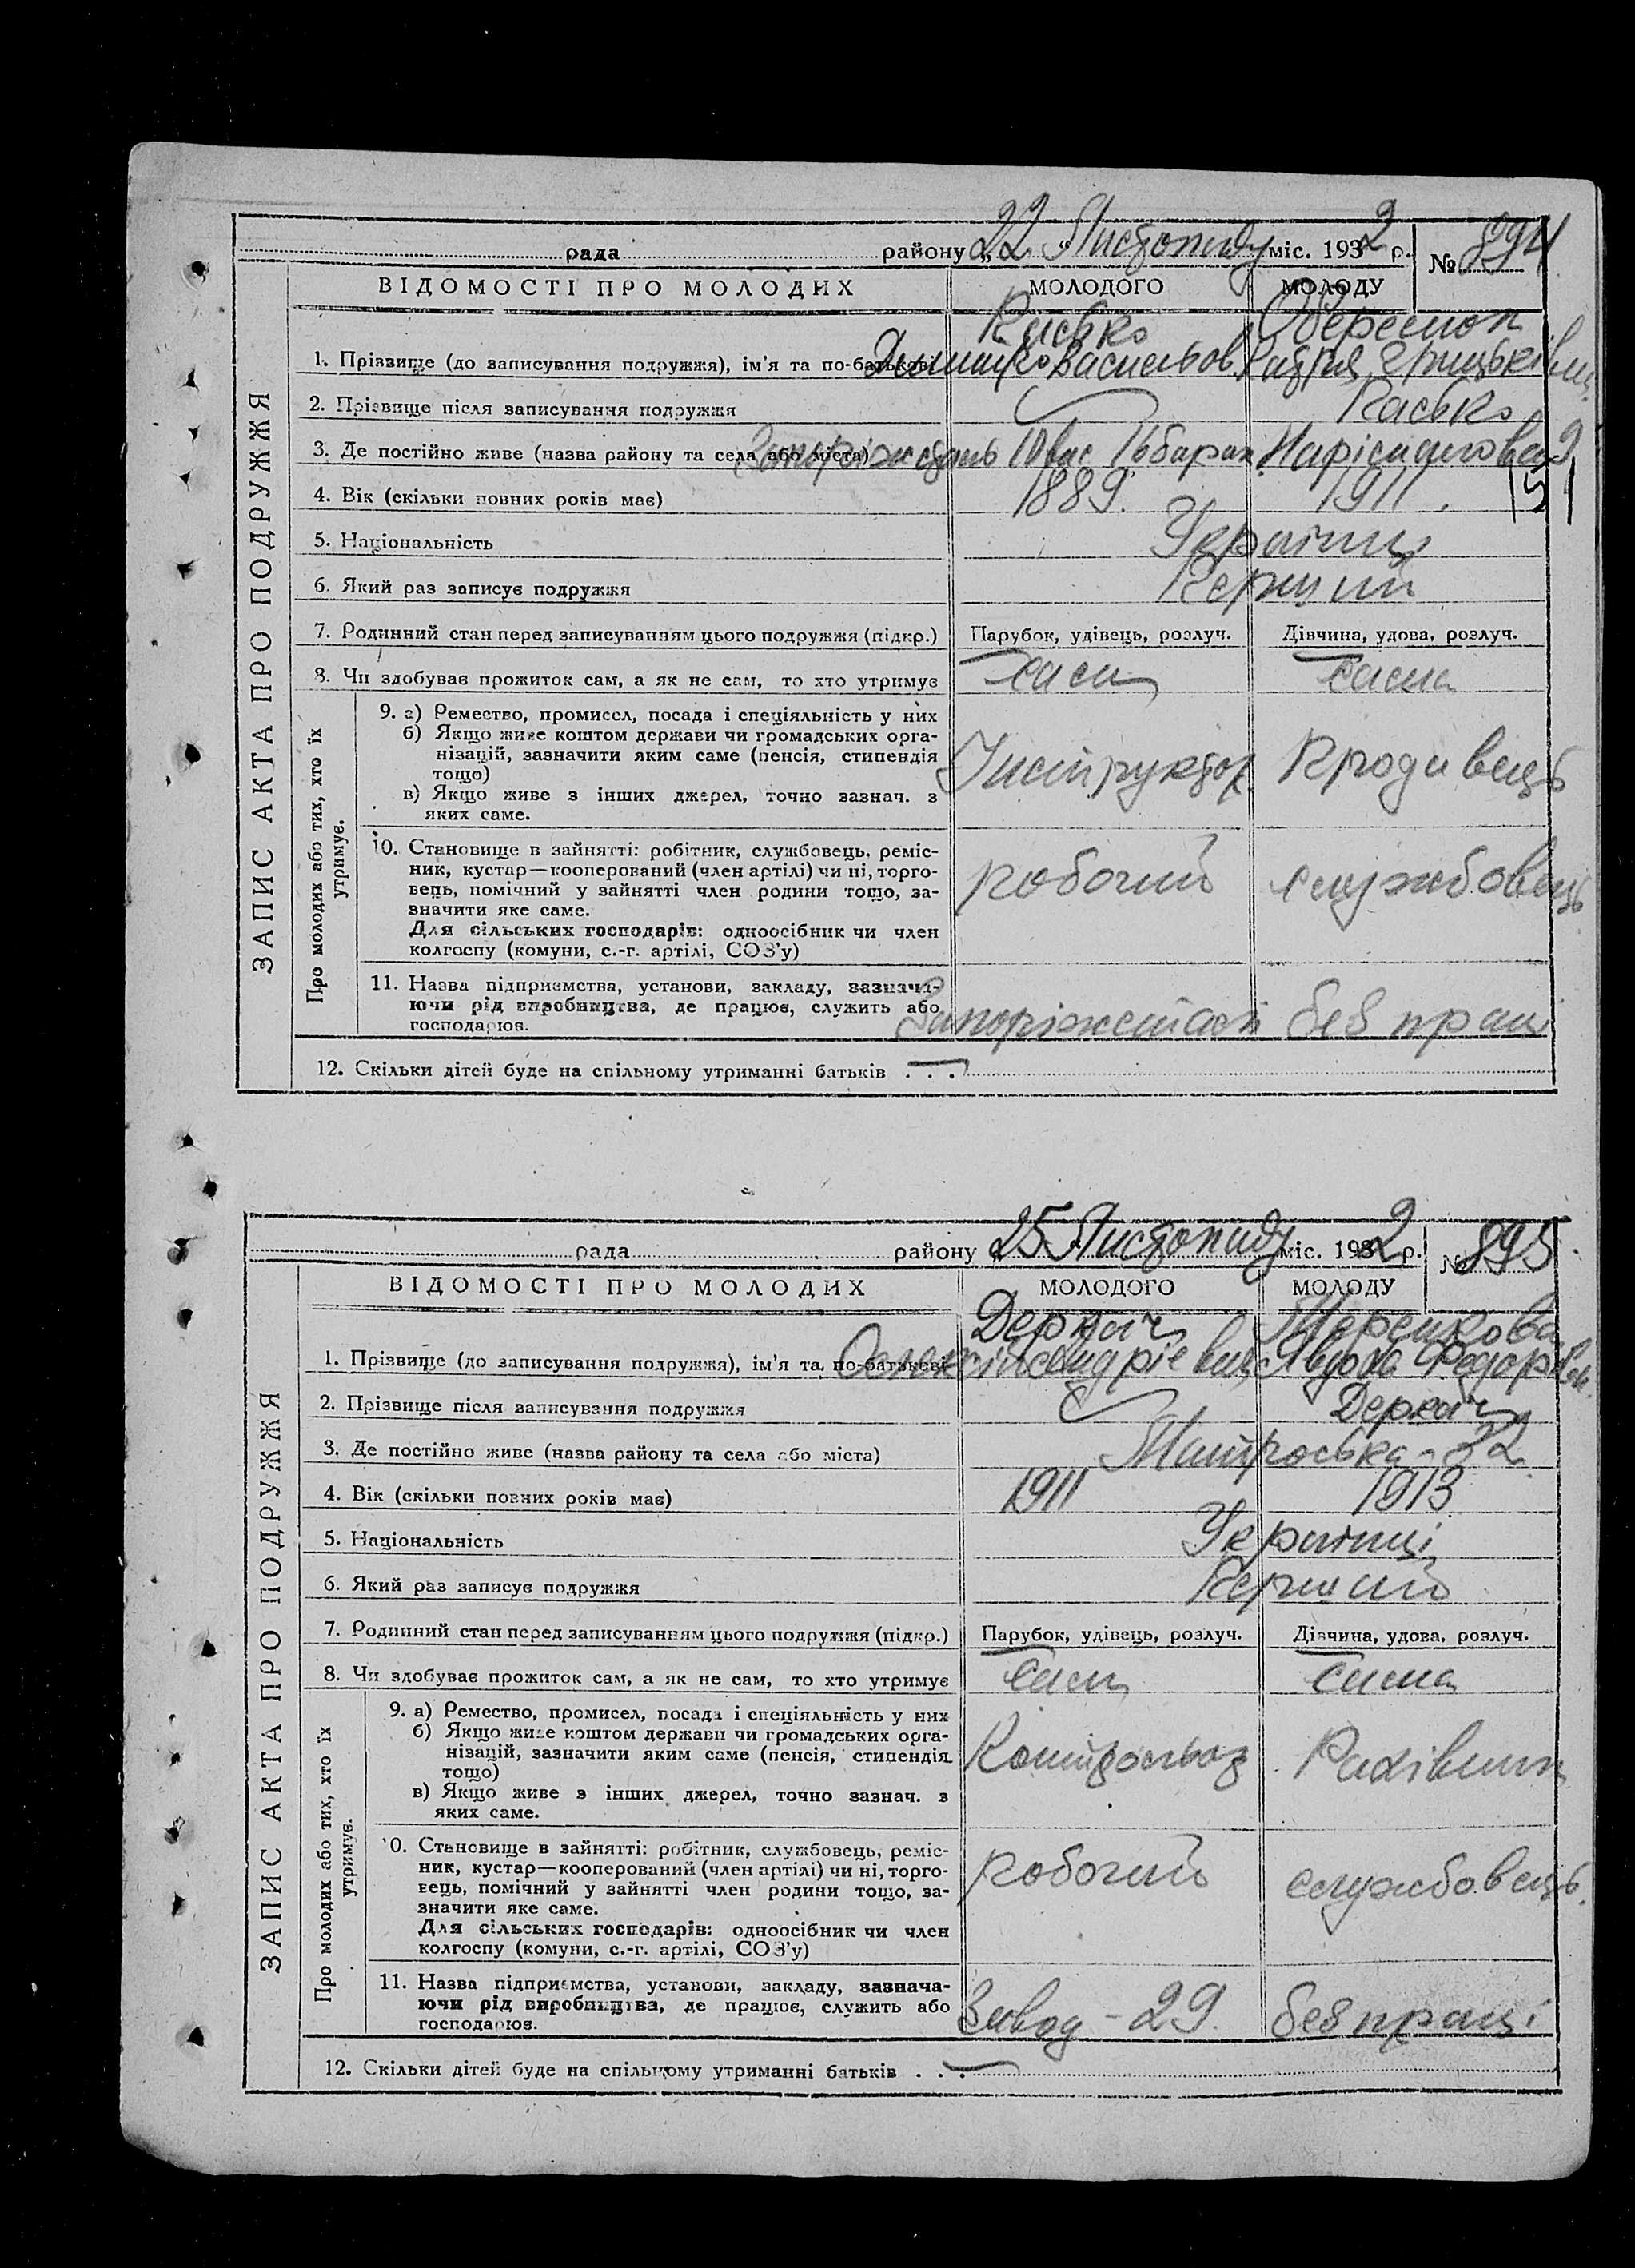 рада району „22“ Листопаду міс. 1932 р. № 894
ЗАПИС АКТА ПРО ПОДРУЖЖЯ
ВІДОМОСТІ ПРО МОЛОДИХ МОЛОДОГО МОЛОДУ
Касько
1. Прізвище (до записування подружжя), ім'я та по-батькові Васильов.
2. Прізвище після записування подружжя Касько
3. Де постійно живе (назва району та села або міста) 16 барак
4. Вік (скільки повних років має) 1889. 1911.
5. Національність Українці
6. Який раз записує подружжя Перший
7. Родинний стан перед записуванням цього подружжя (підкр.) Парубок, удівець, розлуч. Дівчина, удова, розлуч.
8. Чи здобував прожиток сам, а як не сам, то хто утримує сам сама
Про молодих або тих, хто їх утримує.
9. а) Ремество, промисел, посада і спеціяльність у них
б) Якщо живе коштом держави чи громадських орга-
нізацій, зазначити яким саме (пенсія, стипендія
тощо)
в) Якщо живе з інших джерел, точно зазнач. з
яких саме.
Інструктор Продавець
10. Становище в зайнятті: робітник, службовець, реміс-
ник, кустар—кооперований (член артілі) чи ні, торго-
вець, помічний у зайнятті член родини тощо, за-
значити яке саме.
Для сільських господарів: одноосібник чи член
колгоспу (комуни, с.-г. артілі, СОЗ'у)
робочий службовець
11. Назва підприємства, установи, закладу, зазнача-
ючи рід виробництва, де працює, служить або
господарює.
Запоріжсталь без праці
12. Скільки дітей буде на спільному утриманні батьків . . .
рада району „25“ Листопаду міс. 1932 р. № 895
ЗАПИС АКТА ПРО ПОДРУЖЖЯ
ВІДОМОСТІ ПРО МОЛОДИХ МОЛОДОГО МОЛОДУ
Деркач
1. Прізвище (до записування подружжя), ім'я та по-батькові Олексій Явдоха Федорівн.
2. Прізвище після записування подружжя Деркач
3. Де постійно живе (назва району та села або міста) Матроська - 32
4. Вік (скільки повних років має) 1911 1913
5. Національність Українці
6. Який раз записує подружжя Перший
7. Родинний стан перед записуванням цього подружжя (підкр.) Парубок, удівець, розлуч. Дівчина, удова, розлуч.
8. Чи здобував прожиток сам, а як не сам, то хто утримує сам сама
Про молодих або тих, хто їх утримує.
9. а) Ремество, промисел, посада і спеціяльність у них
б) Якщо живе коштом держави чи громадських орга-
нізацій, зазначити яким саме (пенсія, стипендія
тощо)
в) Якщо живе з інших джерел, точно зазнач. з
яких саме.
Рахівник
10. Становище в зайнятті: робітник, службовець, реміс-
ник, кустар—кооперований (член артілі) чи ні, торго-
вець, помічний у зайнятті член родини тощо, за-
значити яке саме.
Для сільських господарів: одноосібник чи член
колгоспу (комуни, с.-г. артілі, СОЗ'у)
робочий службовець.
11. Назва підприємства, установи, закладу, зазнача-
ючи рід виробництва, де працює, служить або
господарює.
Завод - 29. без праці
12. Скільки дітей буде на спільному утриманні батьків . . .